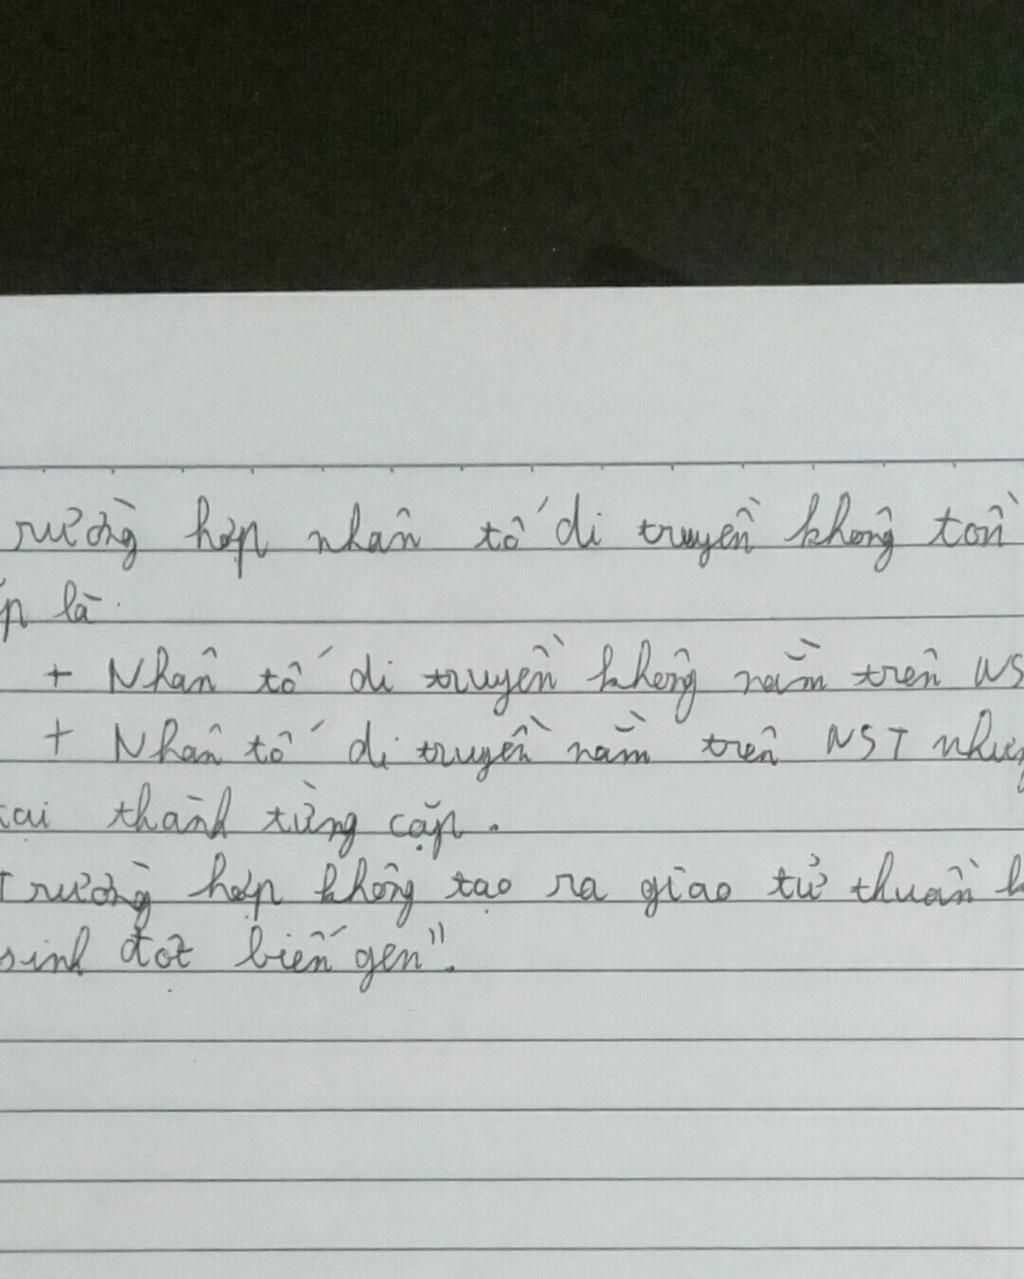 rường hợp nhân tố di truyền không tồn
p là
+ Nhân tố di truyền không nằm trên NS
+ Nhân tố di truyền nằm trên NST như
tại thành từng cặp.
Trường hợp không tạo ra giao tử thuần k
sinh đột biến gen".